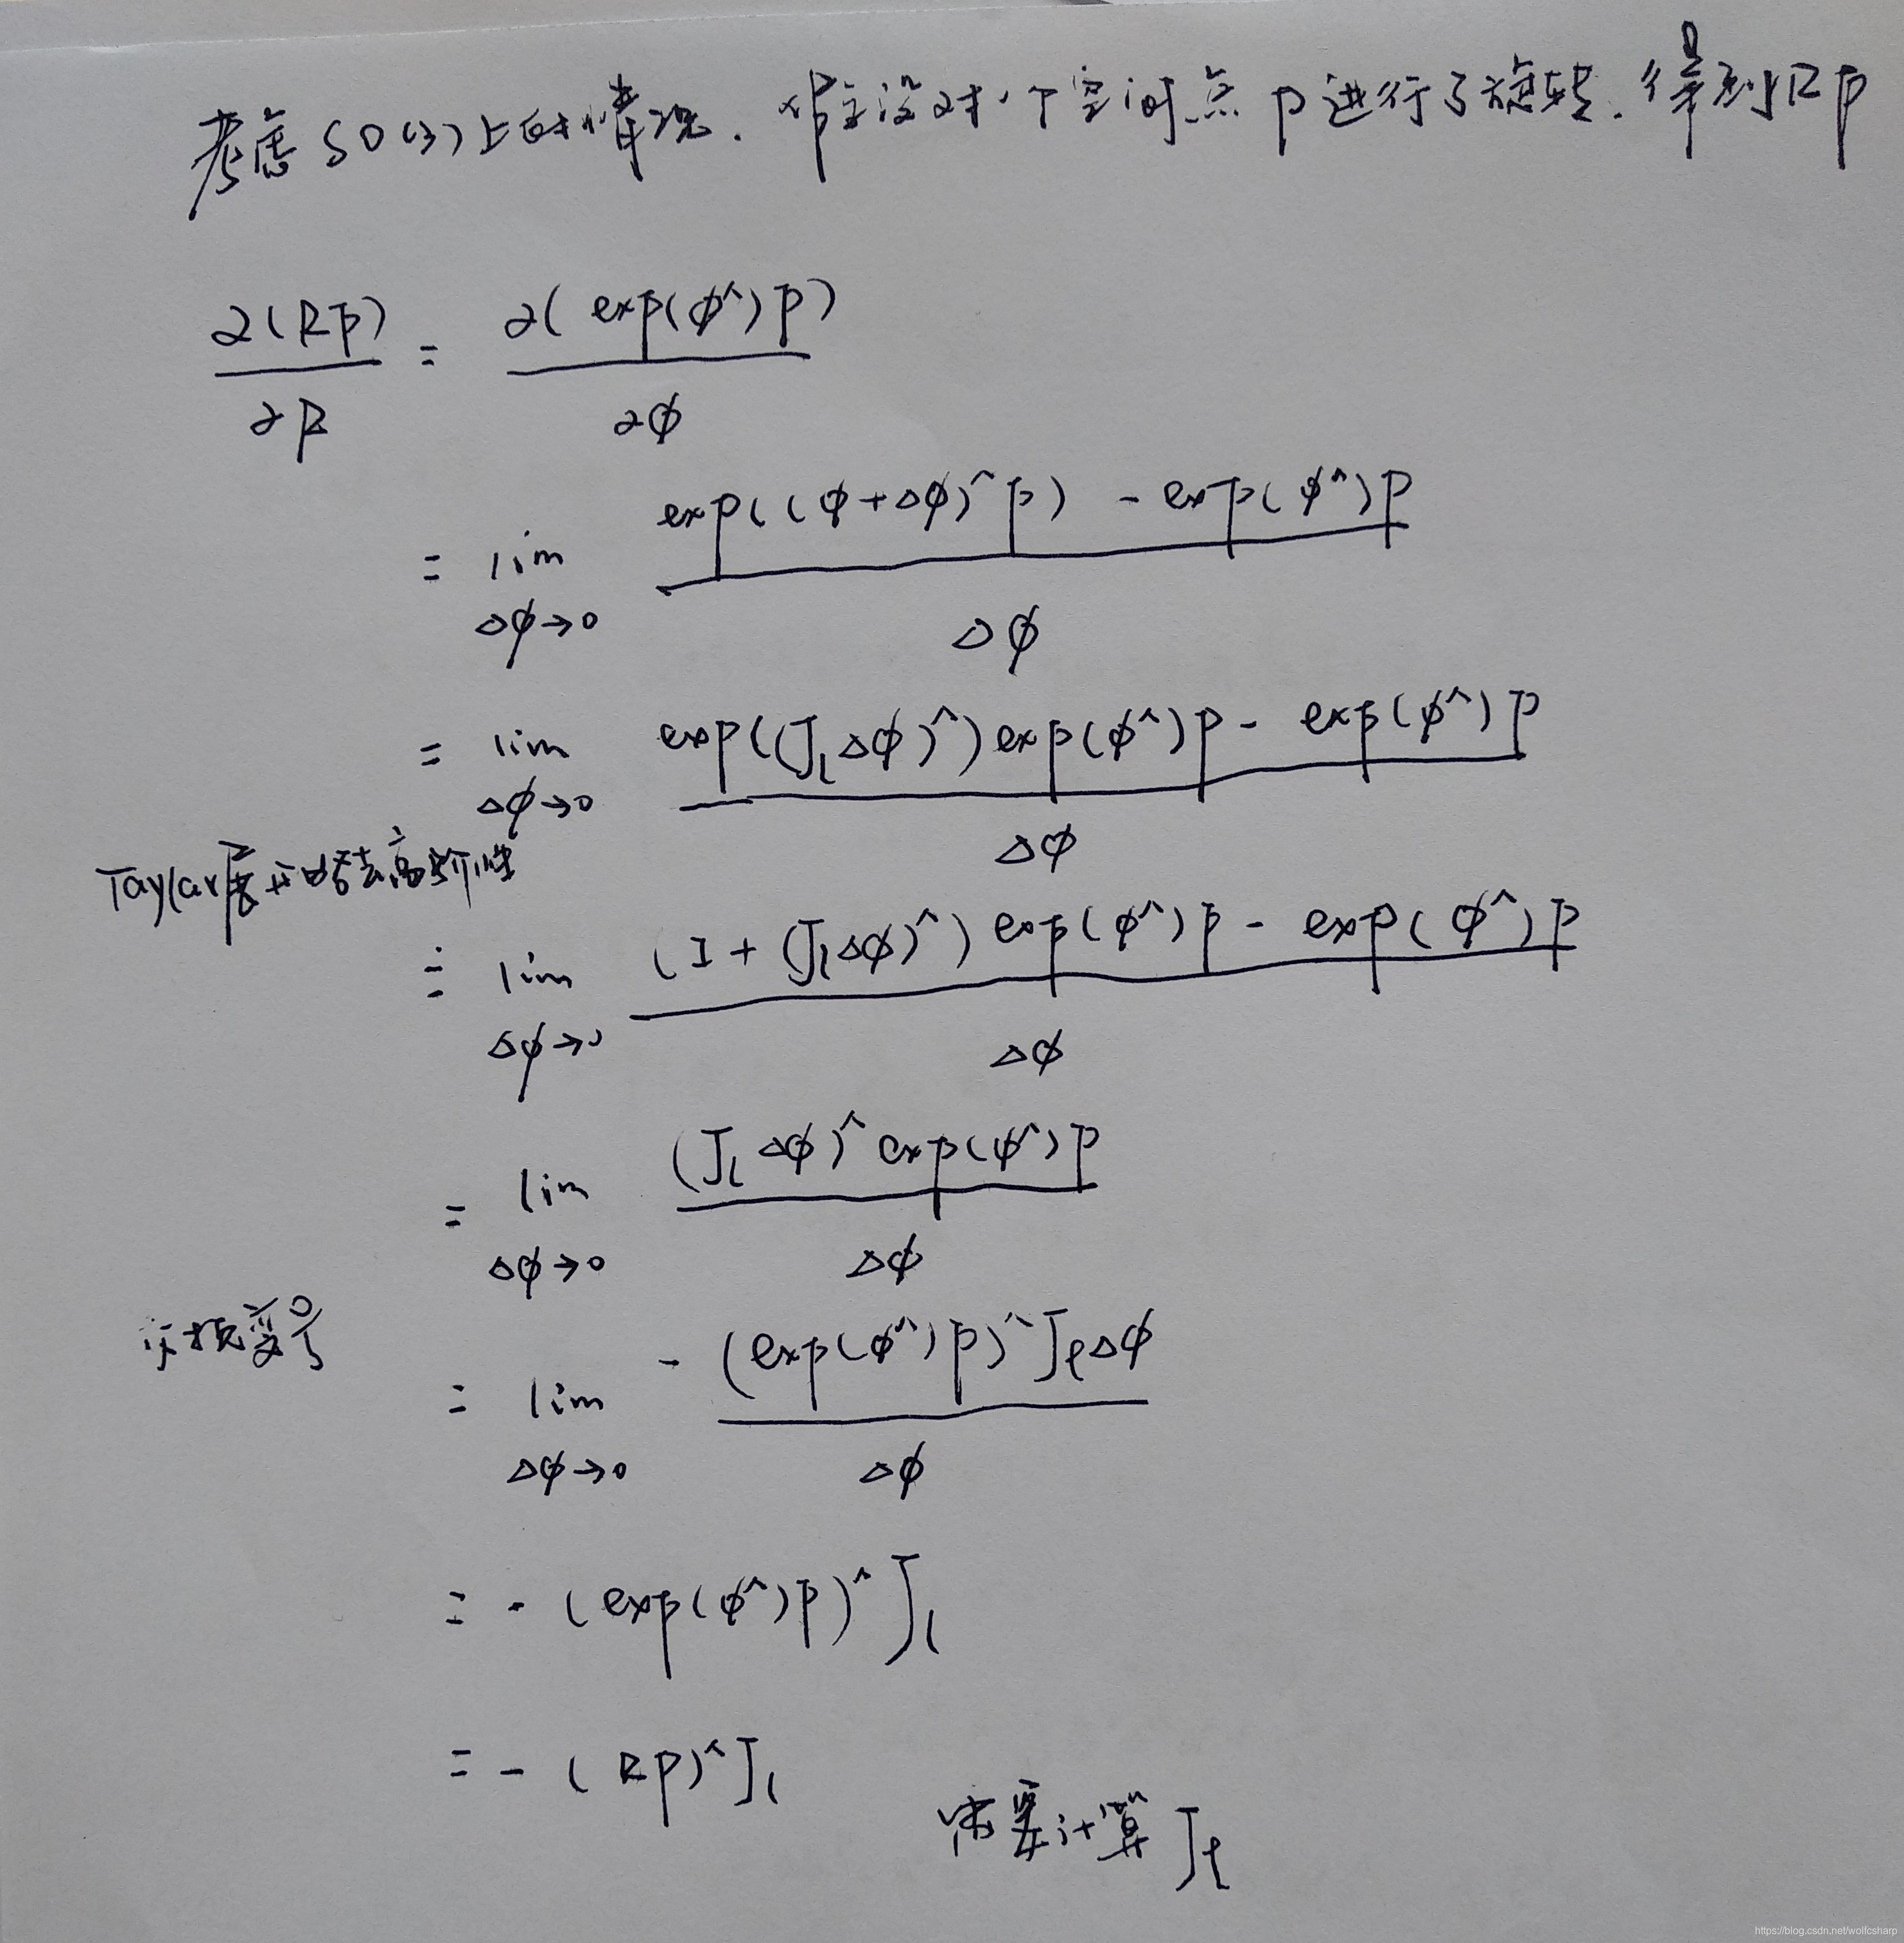 考虑 SO(3) 上的情况. 假设对一个空间点 p 进行了旋转. 得到 Rp
∂(Rp) / ∂R = ∂(exp(φ^)p) / ∂φ
= lim Δφ→0 exp((φ+Δφ)^p) - exp(φ^)p / Δφ
= lim Δφ→0 exp((J_l Δφ)^)exp(φ^)p - exp(φ^)p / Δφ
Taylor展开略去高阶性
≐ lim Δφ→0 (I + (J_l Δφ)^)exp(φ^)p - exp(φ^)p / Δφ
= lim Δφ→0 (J_l Δφ)^ exp(φ^)p / Δφ
变号
= lim Δφ→0 - (exp(φ^)p)^ J_l Δφ / Δφ
= - (exp(φ^)p)^ J_l
= - (Rp)^ J_l
需要计算 J_l
https://blog.csdn.net/wolfcsharp